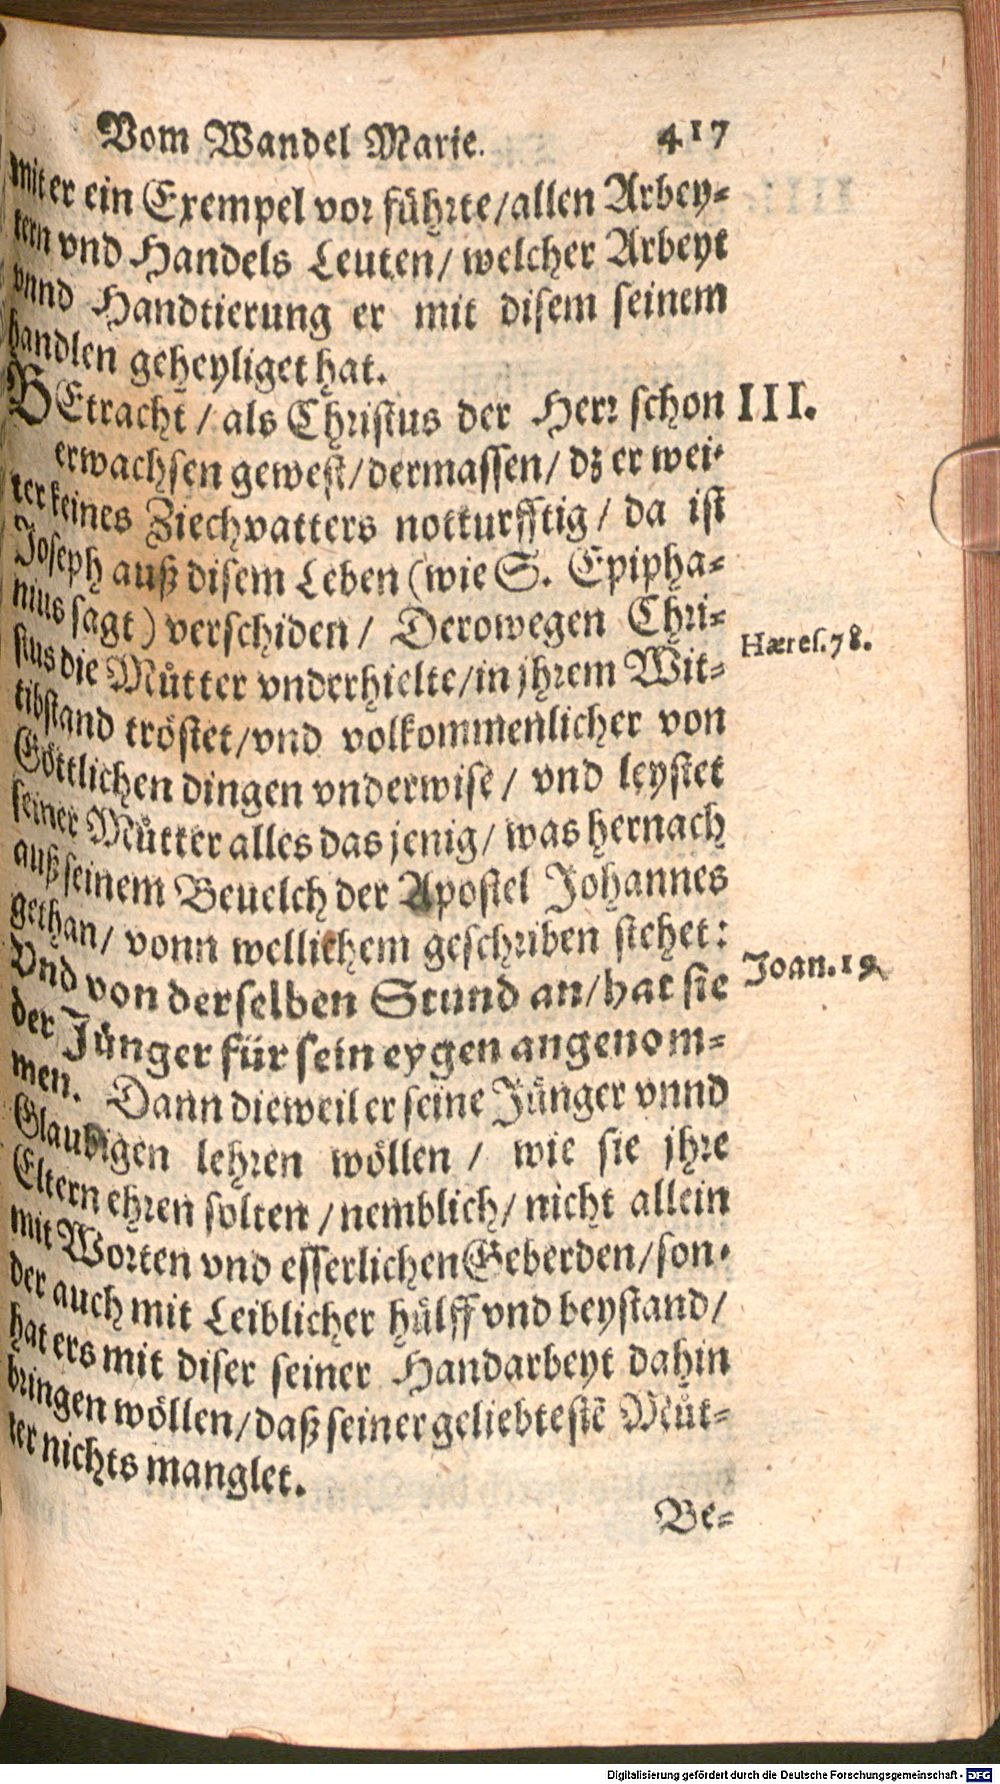 Vom Wandel Marie. 417
mit er ein Exempel vor führte/allen Arbey=
tern vnd Handels Leuten/ welcher Arbeyt
vnnd Handtierung er mit disem seinem
handlen geheyliget hat.
BEtracht / als Christus der Herr schon III.
erwachsen gewest/dermassen/ dz er wei=
ter keines Ziechvatters notturfftig / da ist
Joseph auß disem Leben (wie S. Epipha=
nius sagt) verschiden / Derowegen Chri=
stus die Mütter vnderhielte/in jhrem Wit= Hæres.78.
tibstand tröstet/vnd volkommenlicher von
Göttlichen dingen vnderwise / vnd leystet
seiner Mütter alles das jenig/ was hernach
auß seinem Beuelch der Apostel Johannes
gethan/ vonn wellichem geschriben stehet:
Vnd von derselben Stund an/hat sie Joan.19
der Jünger für sein eygen angenom=
men. Dann dieweil er seine Jünger vnnd
Glaubigen lehren wöllen / wie sie jhre
Eltern ehren solten /nemblich/ nicht allein
mit Worten vnd esserlichen Geberden/son=
der auch mit Leiblicher hülff vnd beystand/
hat ers mit diser seiner Handarbeyt dahin
bringen wöllen/daß seiner geliebtestē Müt=
ter nichts manglet.
Be=
Digitalisierung gefördert durch die Deutsche Forschungsgemeinschaft - DFG